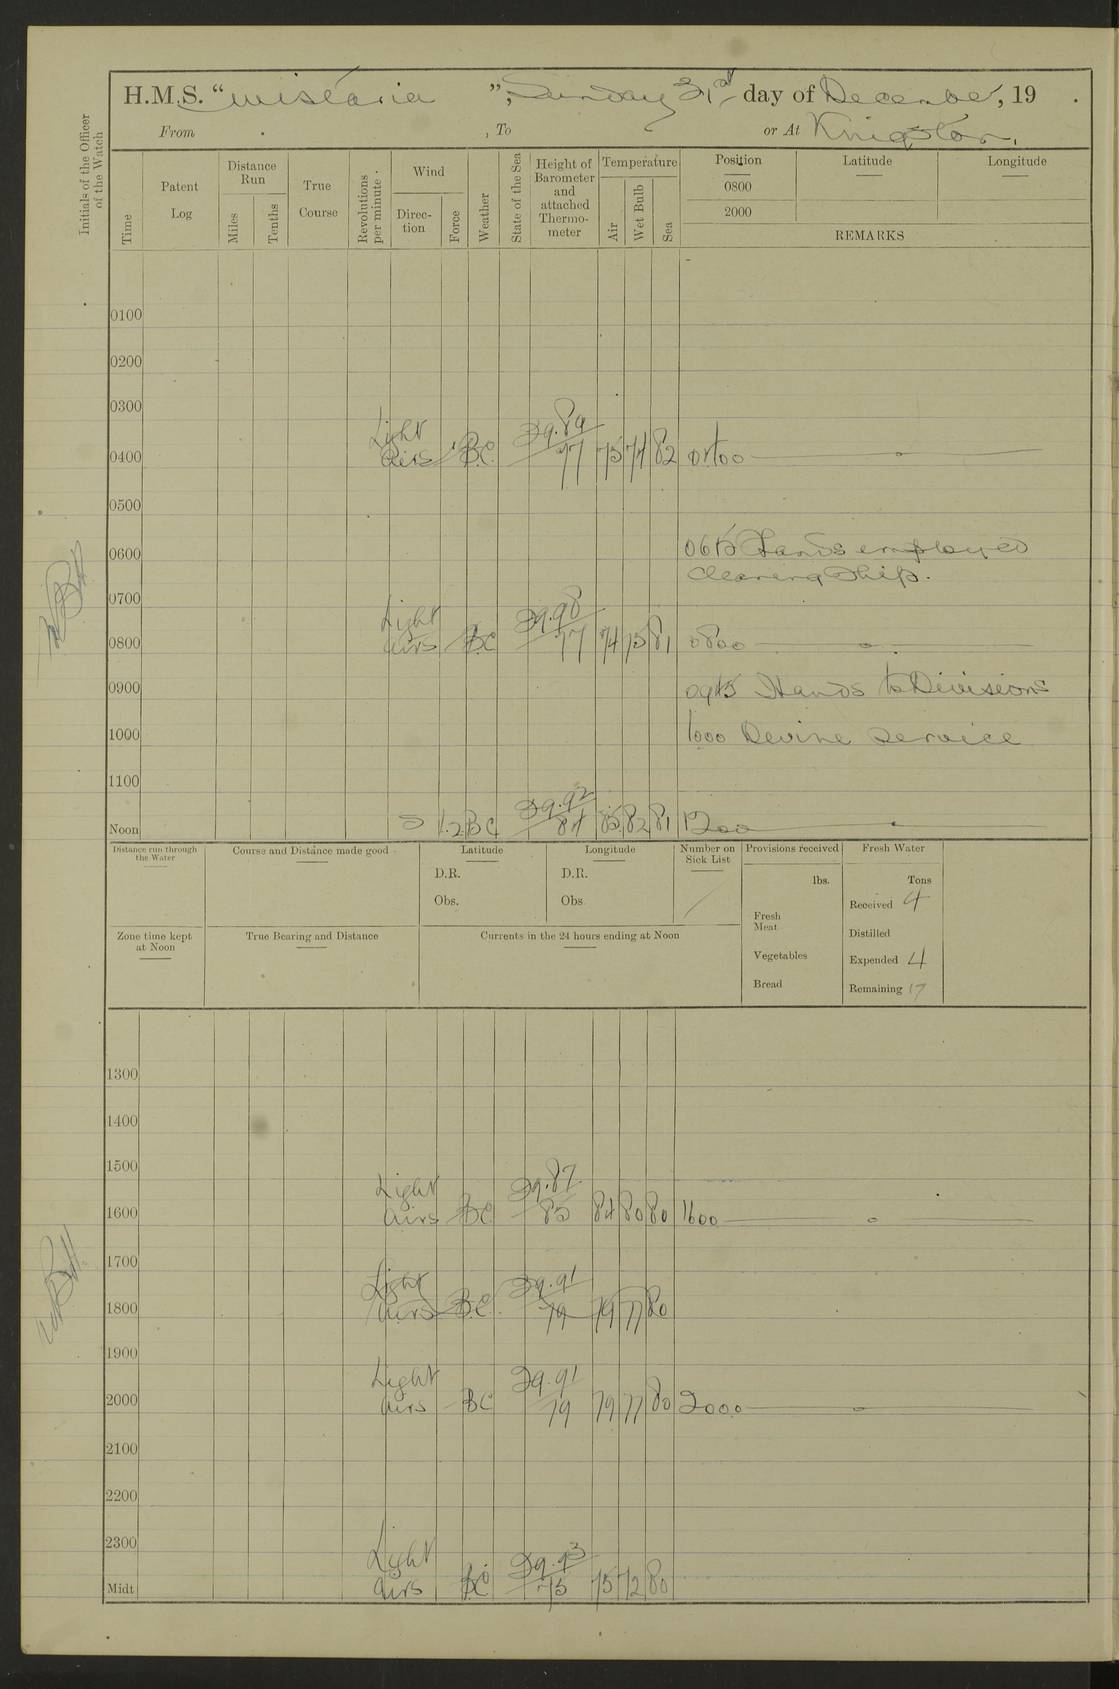 H.M.S. "Wistaria", Sunday 31st day of December, 19 .
From , To or At Kingston.
Initials of the Officer of the Watch
Time
Patent Log
Distance Run
Miles
Tenths
True Course
Revolutions per minute.
Wind
Direction
Force
Weather
State of the Sea
Height of Barometer and attached Thermometer
Temperature
Air
Wet Bulb
Sea
Position
Latitude
Longitude
0800
2000
REMARKS
0100
0200
0300
0400 Light airs BC 29.89 77 75 74 82 0400
0500
0600 0615 Hands employed
cleaning Ship.
0700
0800 Light airs BC 29.98 77 74 73 81 0800
0900 0915 Hands to Divisions
1000 1000 Devine Service
1100
Noon S 1.2 BC 29.92 84 85 82 81 1200
Distance run through the Water
Course and Distance made good
Latitude
D.R.
Obs.
Longitude
D.R.
Obs.
Number on Sick List
Provisions received
lbs.
Fresh Meat
Vegetables
Bread
Fresh Water
Tons
Received 4
Distilled
Expended 4
Remaining 17
Zone time kept at Noon
True Bearing and Distance
Currents in the 24 hours ending at Noon
1300
1400
1500
1600 Light airs BC 29.87 85 84 80 80 1600
1700
1800 Light airs BC 29.91 79 79 77 80
1900
2000 Light airs BC 29.91 79 79 77 80 2000
2100
2200
2300
Midt Light airs BC 29.93 75 75 72 80